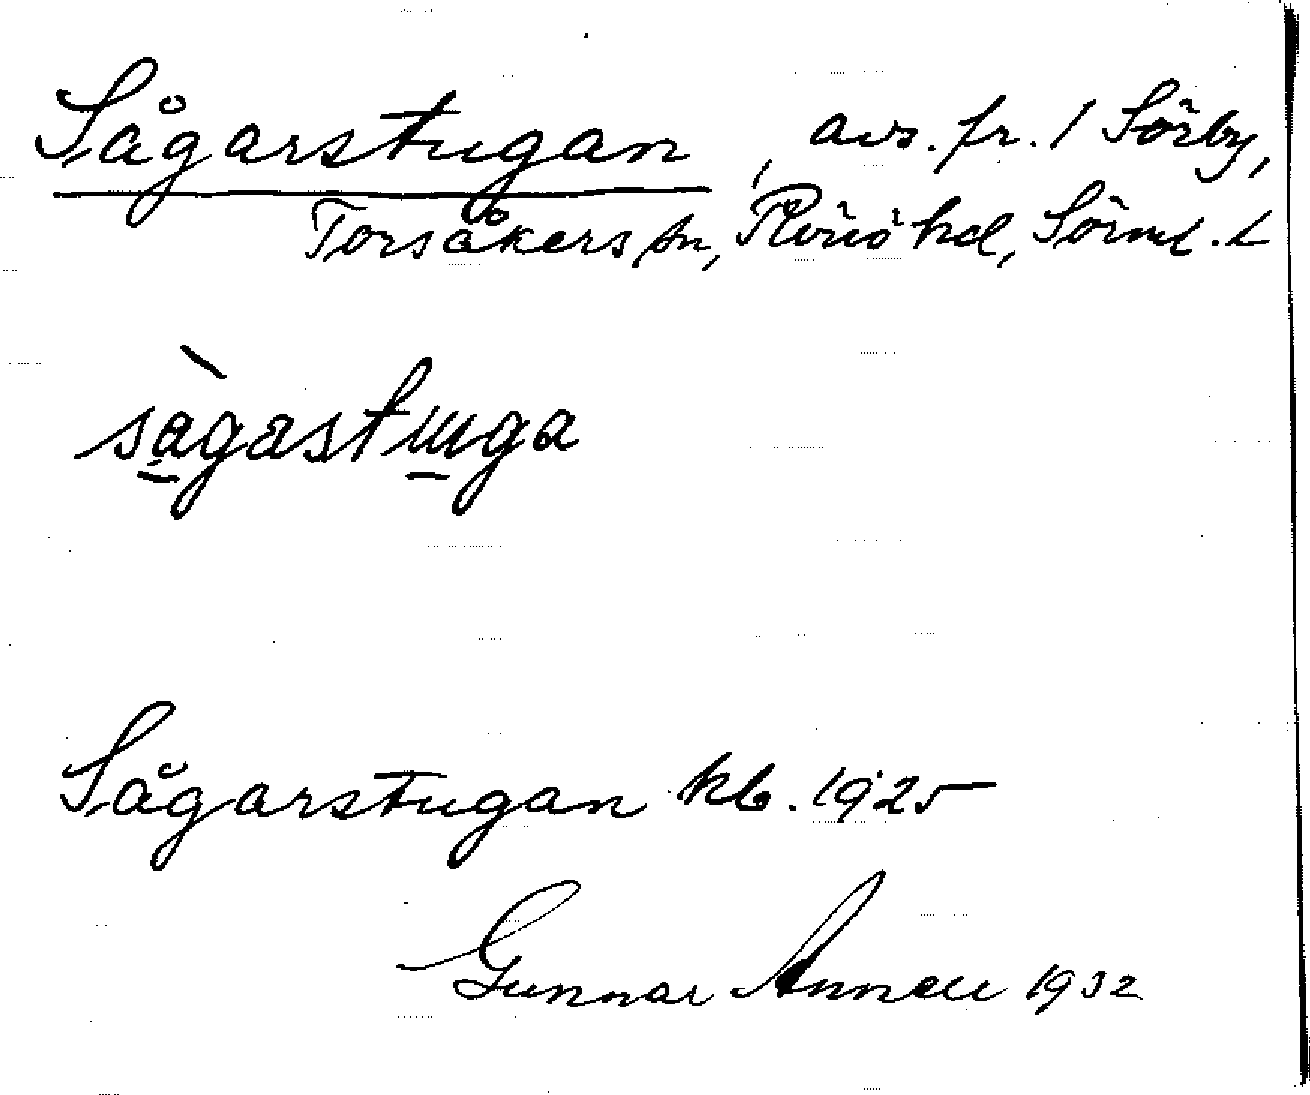 Sågarstugan, avs. fr. 1 Sörby,
Torsåkers sn, Rönö hd, Sörml. l
sàgastuga
Sågarstugan kb. 1925
Gunnar 1932